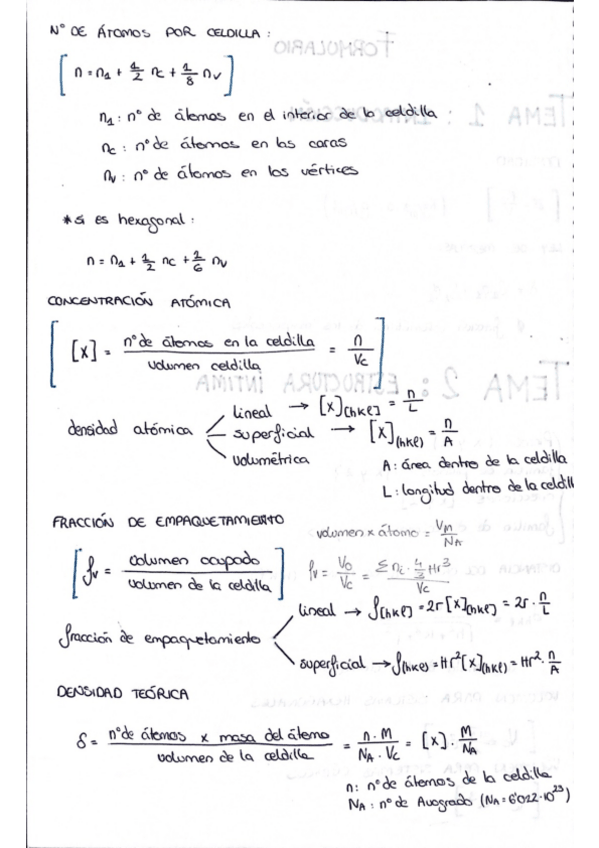 Nº DE ÁTOMOS POR CELDILLA :
[ n = n₁ + 1/2 nc + 1/8 nv ]
n₁ : nº de átomos en el interior de la celdilla
nc : nº de átomos en las caras
nv : nº de átomos en los vértices
* si es hexagonal :
n = n₁ + 1/2 nc + 1/6 nv
CONCENTRACIÓN ATÓMICA
[ [X] = nº de átomos en la celdilla / volumen celdilla = n / Vc ]
densidad atómica
lineal → [X][hkl] = n/L
superficial → [X](hkl) = n/A
volumétrica
A : área dentro de la celdilla
L : longitud dentro de la celdill
FRACCIÓN DE EMPAQUETAMIENTO
volumen x átomo = VM/NA
[ fv = volumen ocupado / volumen de la celdilla ] fv = Vo/Vc = Σ ni · 4/3 πr³ / Vc
fracción de empaquetamiento
lineal → f[hkl] = 2r [X][hkl] = 2r · n/L
superficial → f(hkl) = πr² [X](hkl) = πr² · n/A
DENSIDAD TEÓRICA
δ = nº de átomos x masa del átomo / volumen de la celdilla = n · M / NA · Vc = [X] · M/NA
n : nº de átomos de la celdilla
NA : nº de Avogrado (NA = 6'022·10²³)
FORMULARIO
TEMA 1 : INTRODUCCIÓN
TEMA 2 : ESTRUCTURA ÍNTIMA